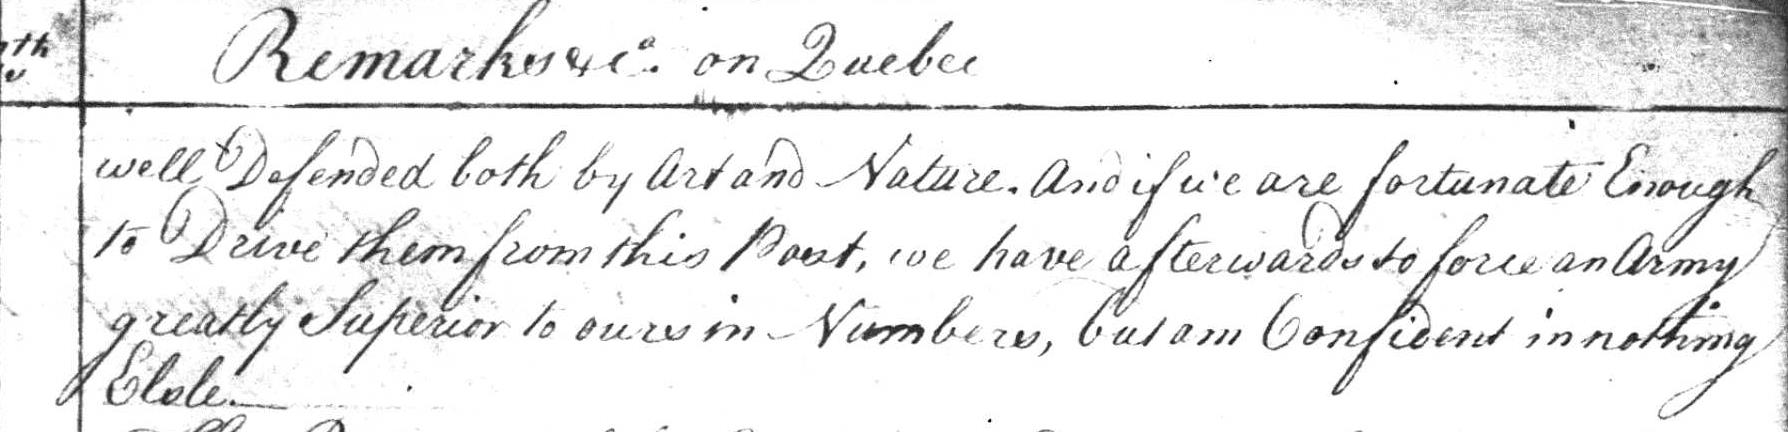 Remarks &ca. on Quebec
well Defended both by Art and Nature. And if we are fortunate Enough
to Drive them from this Post, we have afterwards to force an Army
greatly Superior to ours in Numbers, but am Confident in nothing
Elsle.